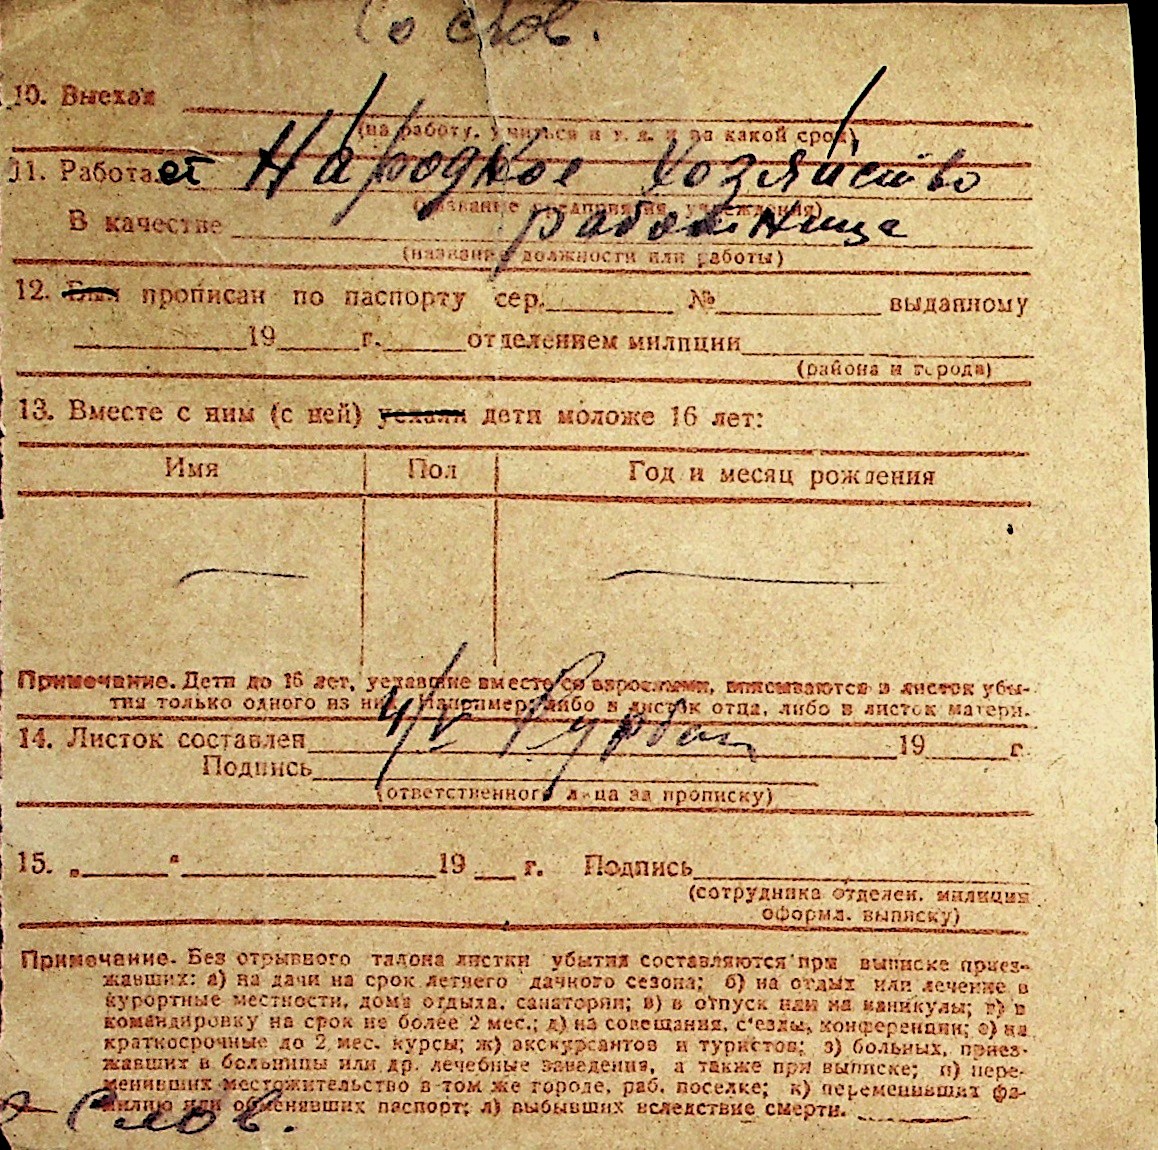 Со слов.
10. Выехал
(на работу, учиться и т. д. и на какой срок)
11. Работает Народное Хозяйство
(название предприятия, учреждения)
В качестве работница
(название должности или работы)
12. Был прописан по паспорту сер. № выданному
19 г. отделением милиции
(района и города)
13. Вместе с ним (с ней) уехали дети моложе 16 лет:
Имя Пол Год и месяц рождения
Примечание. Дети до 16 лет, уехавшие вместе со взрослыми, вписываются в листок убы-
тия только одного из них. Например: либо в листок отца, либо в листок матери.
14. Листок составлен 4/V 19 г.
Подпись
(ответственного лица за прописку)
15. „ “ 19 г. Подпись
(сотрудника отделен. милиции
оформл. выписку)
Примечание. Без отрывного талона листки убытия составляются при выписке приез-
жавших: а) на дачи на срок летнего дачного сезона; б) на отдых или лечение в
курортные местности, дома отдыха, санатории; в) в отпуск или на каникулы; г) в
командировку на срок не более 2 мес.; д) на совещания, с'езды, конференции; е) на
краткосрочные до 2 мес. курсы; ж) экскурсантов и туристов; з) больных, приез-
жавших в больницы или др. лечебные заведения, а также при выписке; и) пере-
менивших местожительство в том же городе, раб. поселке; к) переменивших фа-
милию или обменявших паспорт; л) выбывших вследствие смерти.
Слов.